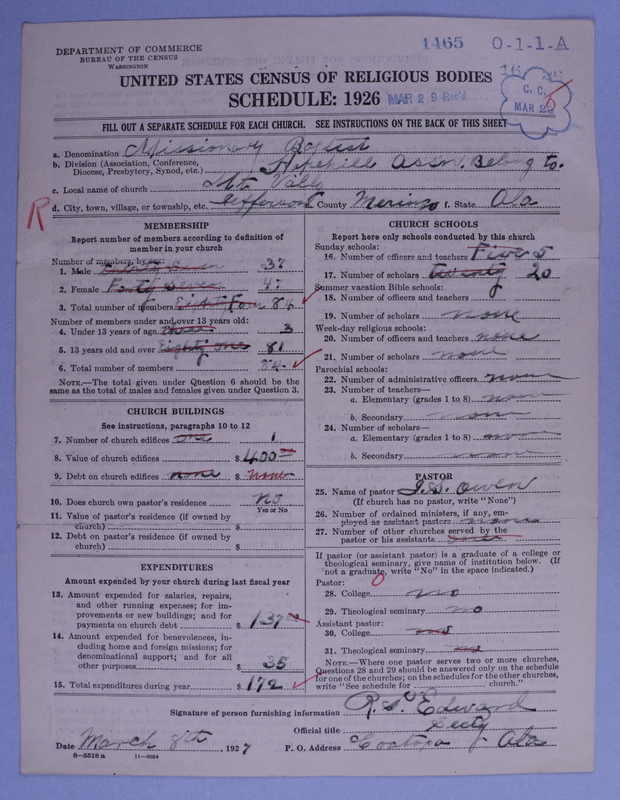 1465 0-1-1-A
DEPARTMENT OF COMMERCE
BUREAU OF THE CENSUS
WASHINGTON
UNITED STATES CENSUS OF RELIGIOUS BODIES
SCHEDULE: 1926
MAR 29 Rec'd
C. C.
MAR 29
FILL OUT A SEPARATE SCHEDULE FOR EACH CHURCH. SEE INSTRUCTIONS ON THE BACK OF THIS SHEET
a. Denomination Missionary Baptist
b. Division (Association, Conference, Diocese, Presbytery, Synod, etc.) Assn. Belong to.
c. Local name of church Mt. Vally
d. City, town, village, or township, etc. Jefferson e. County Meringo f. State Ala
R
MEMBERSHIP
Report number of members according to definition of
member in your church
Number of members, by sex:
1. Male 37
2. Female Forty Seven 47
3. Total number of members Eighty Four 84
Number of members under and over 13 years old:
4. Under 13 years of age three 3
5. 13 years old and over Eighty one 81
6. Total number of members 84
NOTE.—The total given under Question 6 should be the
same as the total of males and females given under Question 3.
CHURCH BUILDINGS
See instructions, paragraphs 10 to 12
7. Number of church edifices one 1
8. Value of church edifices $ 400
9. Debt on church edifices none $ none
10. Does church own pastor's residence no
Yes or No
11. Value of pastor's residence (if owned by
church) $
12. Debt on pastor's residence (if owned by
church) $
EXPENDITURES
Amount expended by your church during last fiscal year
13. Amount expended for salaries, repairs,
and other running expenses; for im-
provements or new buildings; and for
payments on church debt $ 137
14. Amount expended for benevolences, in-
cluding home and foreign missions; for
denominational support; and for all
other purposes $ 35
15. Total expenditures during year $ 172
CHURCH SCHOOLS
Report here only schools conducted by this church
Sunday schools:
16. Number of officers and teachers Five 5
17. Number of scholars twenty 20
Summer vacation Bible schools:
18. Number of officers and teachers
19. Number of scholars none
Week-day religious schools:
20. Number of officers and teachers none
21. Number of scholars none
Parochial schools:
22. Number of administrative officers none
23. Number of teachers—
a. Elementary (grades 1 to 8) none
b. Secondary none
24. Number of scholars—
a. Elementary (grades 1 to 8) none
b. Secondary none
PASTOR
25. Name of pastor J. S. Owen
(If church has no pastor, write "None")
26. Number of ordained ministers, if any, em-
ployed as assistant pastors none
27. Number of other churches served by the
pastor or his assistants
If pastor (or assistant pastor) is a graduate of a college or
theological seminary, give name of institution below. (If
not a graduate, write "No" in the space indicated.)
Pastor: 0
28. College no
29. Theological seminary no
Assistant pastor:
30. College no
31. Theological seminary no
NOTE.—Where one pastor serves two or more churches,
Questions 28 and 29 should be answered only on the schedule
for one of the churches; on the schedules for the other churches,
write "See schedule for church."
Signature of person furnishing information R. S. Edward
Official title Secty
Date March 8th, 1927 P. O. Address Coatopa Ala
8—5318 a 11—9064